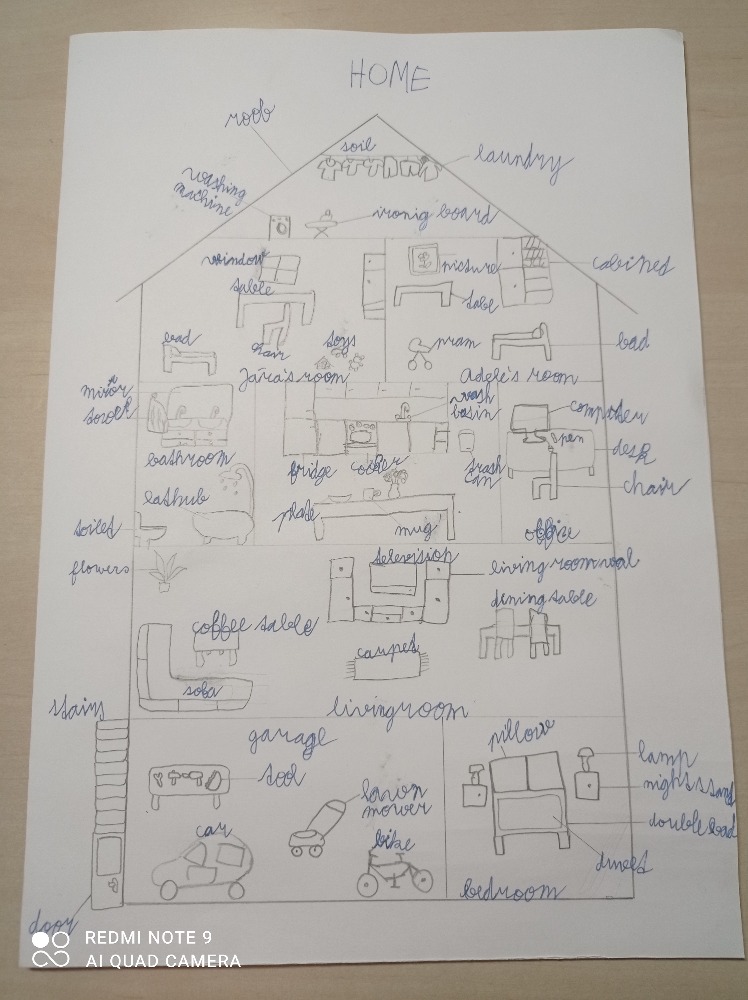 HOME
roob
soil
laundry
washing
machine
ironig board
window
picture
cabinet
table
tabe
bad
chair
toys
pram
bad
Jára's room
Adele's room
mirror
wash
basin
computher
open
desk
bathroom
fridge
cooker
trash
can
chair
bathub
plate
mug
toilet
office
flowers
television
living room wal
dining table
coffee table
carpet
soba
livingroom
stairs
garage
pillow
lamp
tool
night stand
lawn
mower
double bad
car
bike
duvet
bedroom
door
REDMI NOTE 9
AI QUAD CAMERA